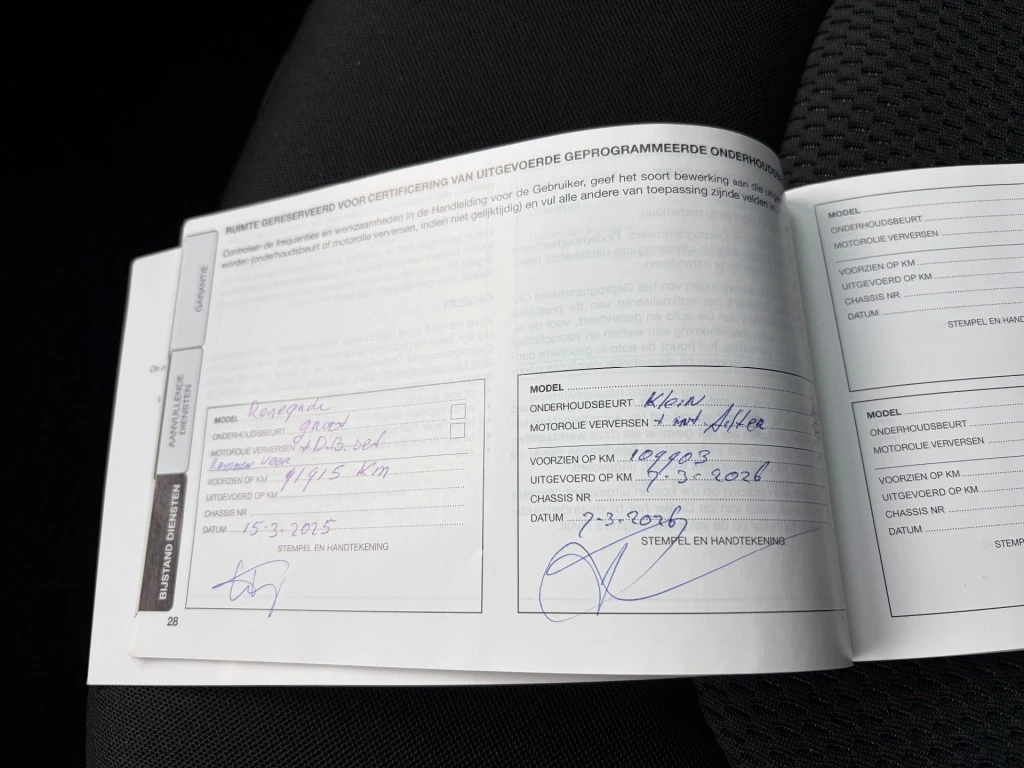 RUIMTE GERESERVEERD VOOR CERTIFICERING VAN UITGEVOERDE GEPROGRAMMEERDE
Controleer de frequenties en werkzaamheden in de Handleiding voor de Gebruiker, geef het soort bewerking aan die
worden (onderhoudsbeurt of motorolie verversen, indien niet gelijktijdig) en vul alle andere van toepassing zijnde velden in
GARANTIE
AANVULLENDE
DIENSTEN
BIJSTAND DIENSTEN
MODEL Renegade
ONDERHOUDSBEURT groot
MOTOROLIE VERVERSEN + D.B. set
Remmen voor
VOORZIEN OP KM 91915 Km
UITGEVOERD OP KM
CHASSIS NR
DATUM 15-3-2025
STEMPEL EN HANDTEKENING
28
MODEL
ONDERHOUDSBEURT Klein
MOTOROLIE VERVERSEN + int. filter
VOORZIEN OP KM 109903
UITGEVOERD OP KM 7-3-2026
CHASSIS NR
DATUM 7-3-2026
STEMPEL EN HANDTEKENING
MODEL
ONDERHOUDSBEURT
MOTOROLIE VERVERSEN
VOORZIEN OP KM
UITGEVOERD OP KM
CHASSIS NR
DATUM
STEMPEL EN
MODEL
ONDERHOUDSBEURT
MOTOROLIE VERVERSEN
VOORZIEN OP KM
UITGEVOERD OP KM
CHASSIS NR
DATUM